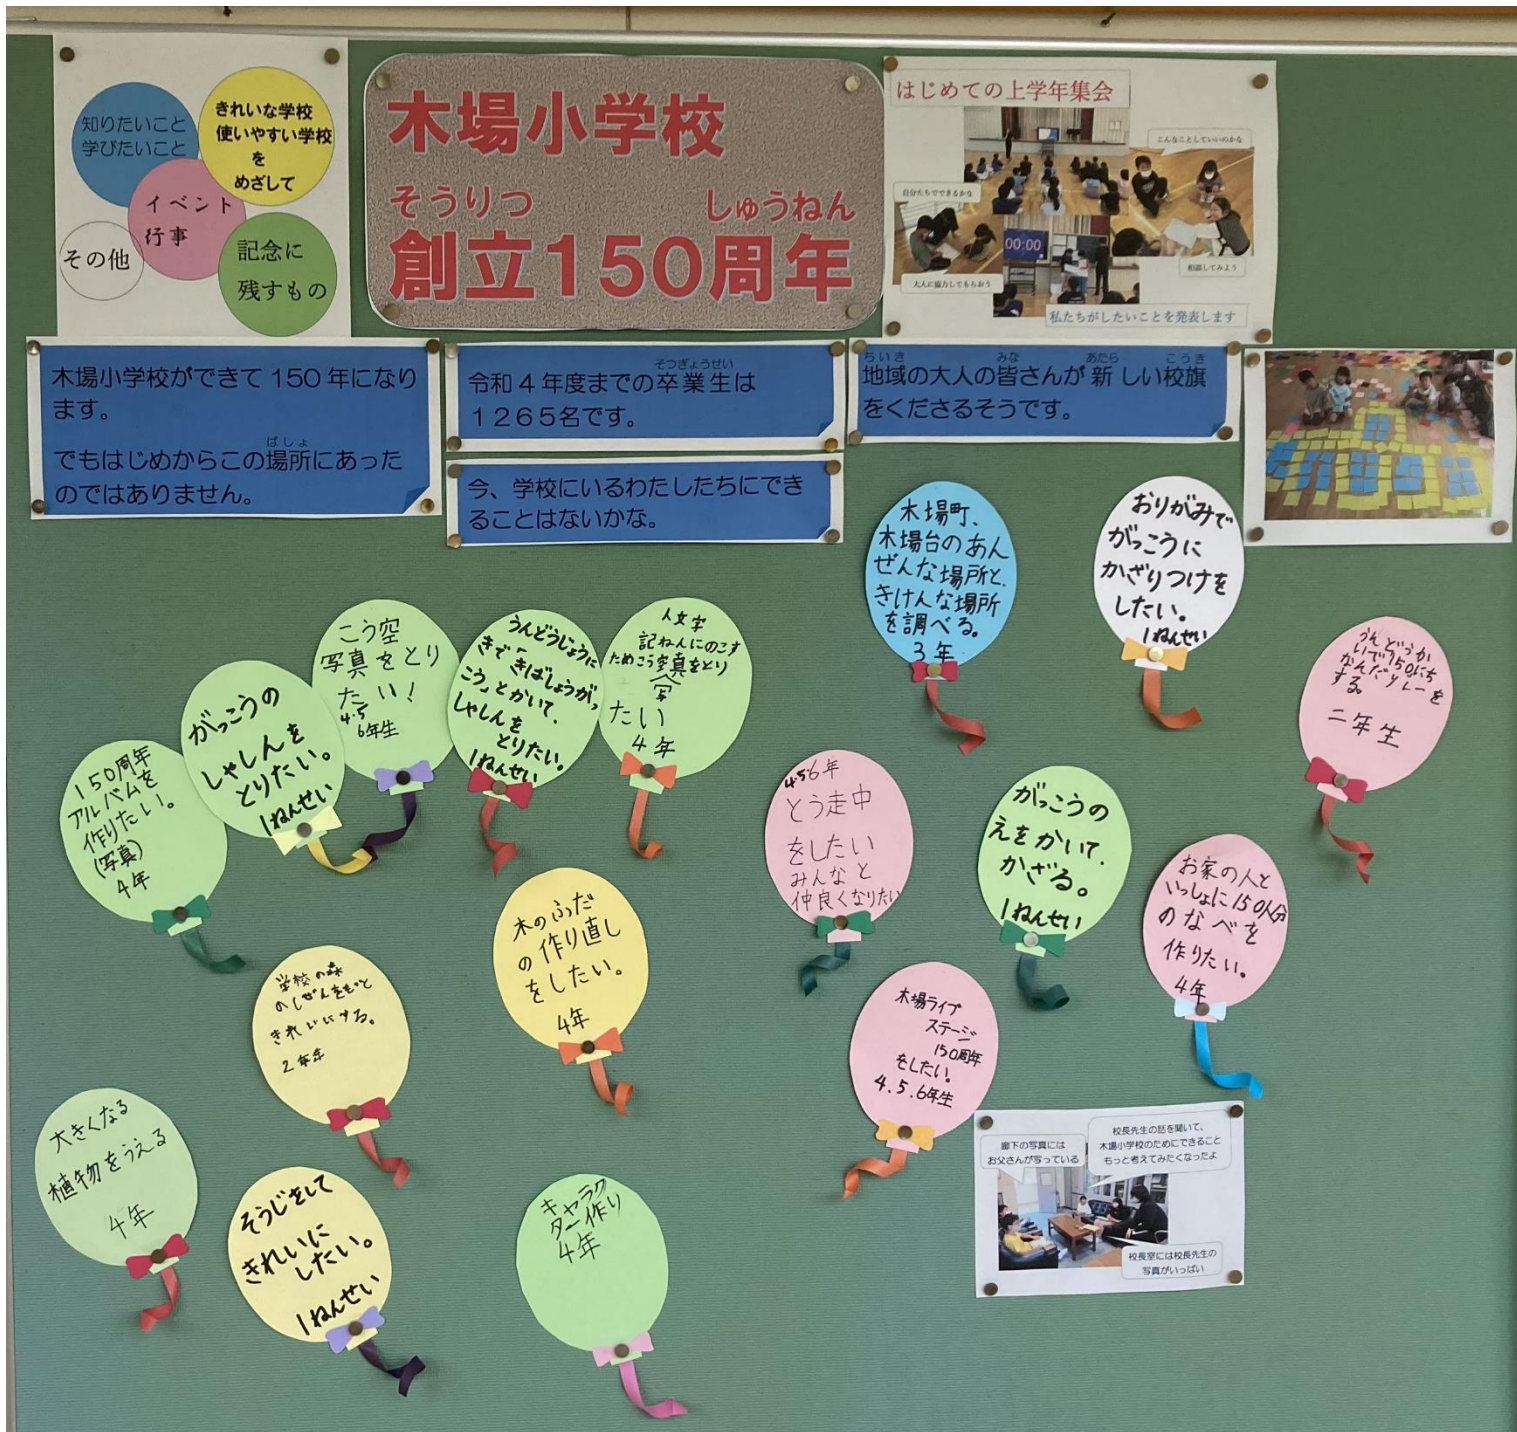 知りたいこと
学びたいこと
きれいな学校
使いやすい学校
を
めざして
イベント
行事
その他
記念に
残すもの
木場小学校
そうりつ しゅうねん
創立150周年
はじめての上学年集会
こんなことしていいのかな
自分たちでできるかな
00:00
相談してみよう
大人に協力してもらおう
私たちがしたいことを発表します
木場小学校ができて150年になり
ます。
ばしょ
でもはじめからこの場所にあった
のではありません。
そつぎょうせい
令和4年度までの卒業生は
1265名です。
今、学校にいるわたしたちにでき
ることはないかな。
ちいき みな あたら こうき
地域の大人の皆さんが新しい校旗
をくださるそうです。
木場町、
木場台のあん
ぜんな場所と、
きけんな場所
を調べる。
3年
おりがみで
がっこうに
かざりつけを
したい。
1ねんせい
うんどうか
いで150にち
なんだリレーを
する。
二年生
150周年
アルバムを
作りたい。
(写真)
4年
がっこうの
しゃしんを
とりたい。
1ねんせい
こう空
写真をとり
たい!
4.5
6年生
うんどうじょうに
きで「きばしょうがっ
こう」とかいて、
しゃしんを
とりたい。
1ねんせい
人文字
記ねんにのこす
ためこう空真をとり
写
たい
4年
4.5.6年
とう走中
をしたい
みんなと
仲良くなりたい
がっこうの
えをかいて、
かざる。
1ねんせい
お家の人と
いっしょに150人分
のなべを
作りたい。
4年
学校の森
のしぜんをもっと
きれいにする。
2年生
木のふだ
の作り直し
をしたい。
4年
木場ライブ
ステージ
150周年
をしたい。
4.5.6年生
大きくなる
植物をうえる
4年
そうじをして
きれいに
したい。
1ねんせい
キャラク
ター作り
4年
廊下の写真には
お父さんが写っている
校長先生の話を聞いて、
木場小学校のためにできること
もっと考えてみたくなったよ
校長室には校長先生の
写真がいっぱい